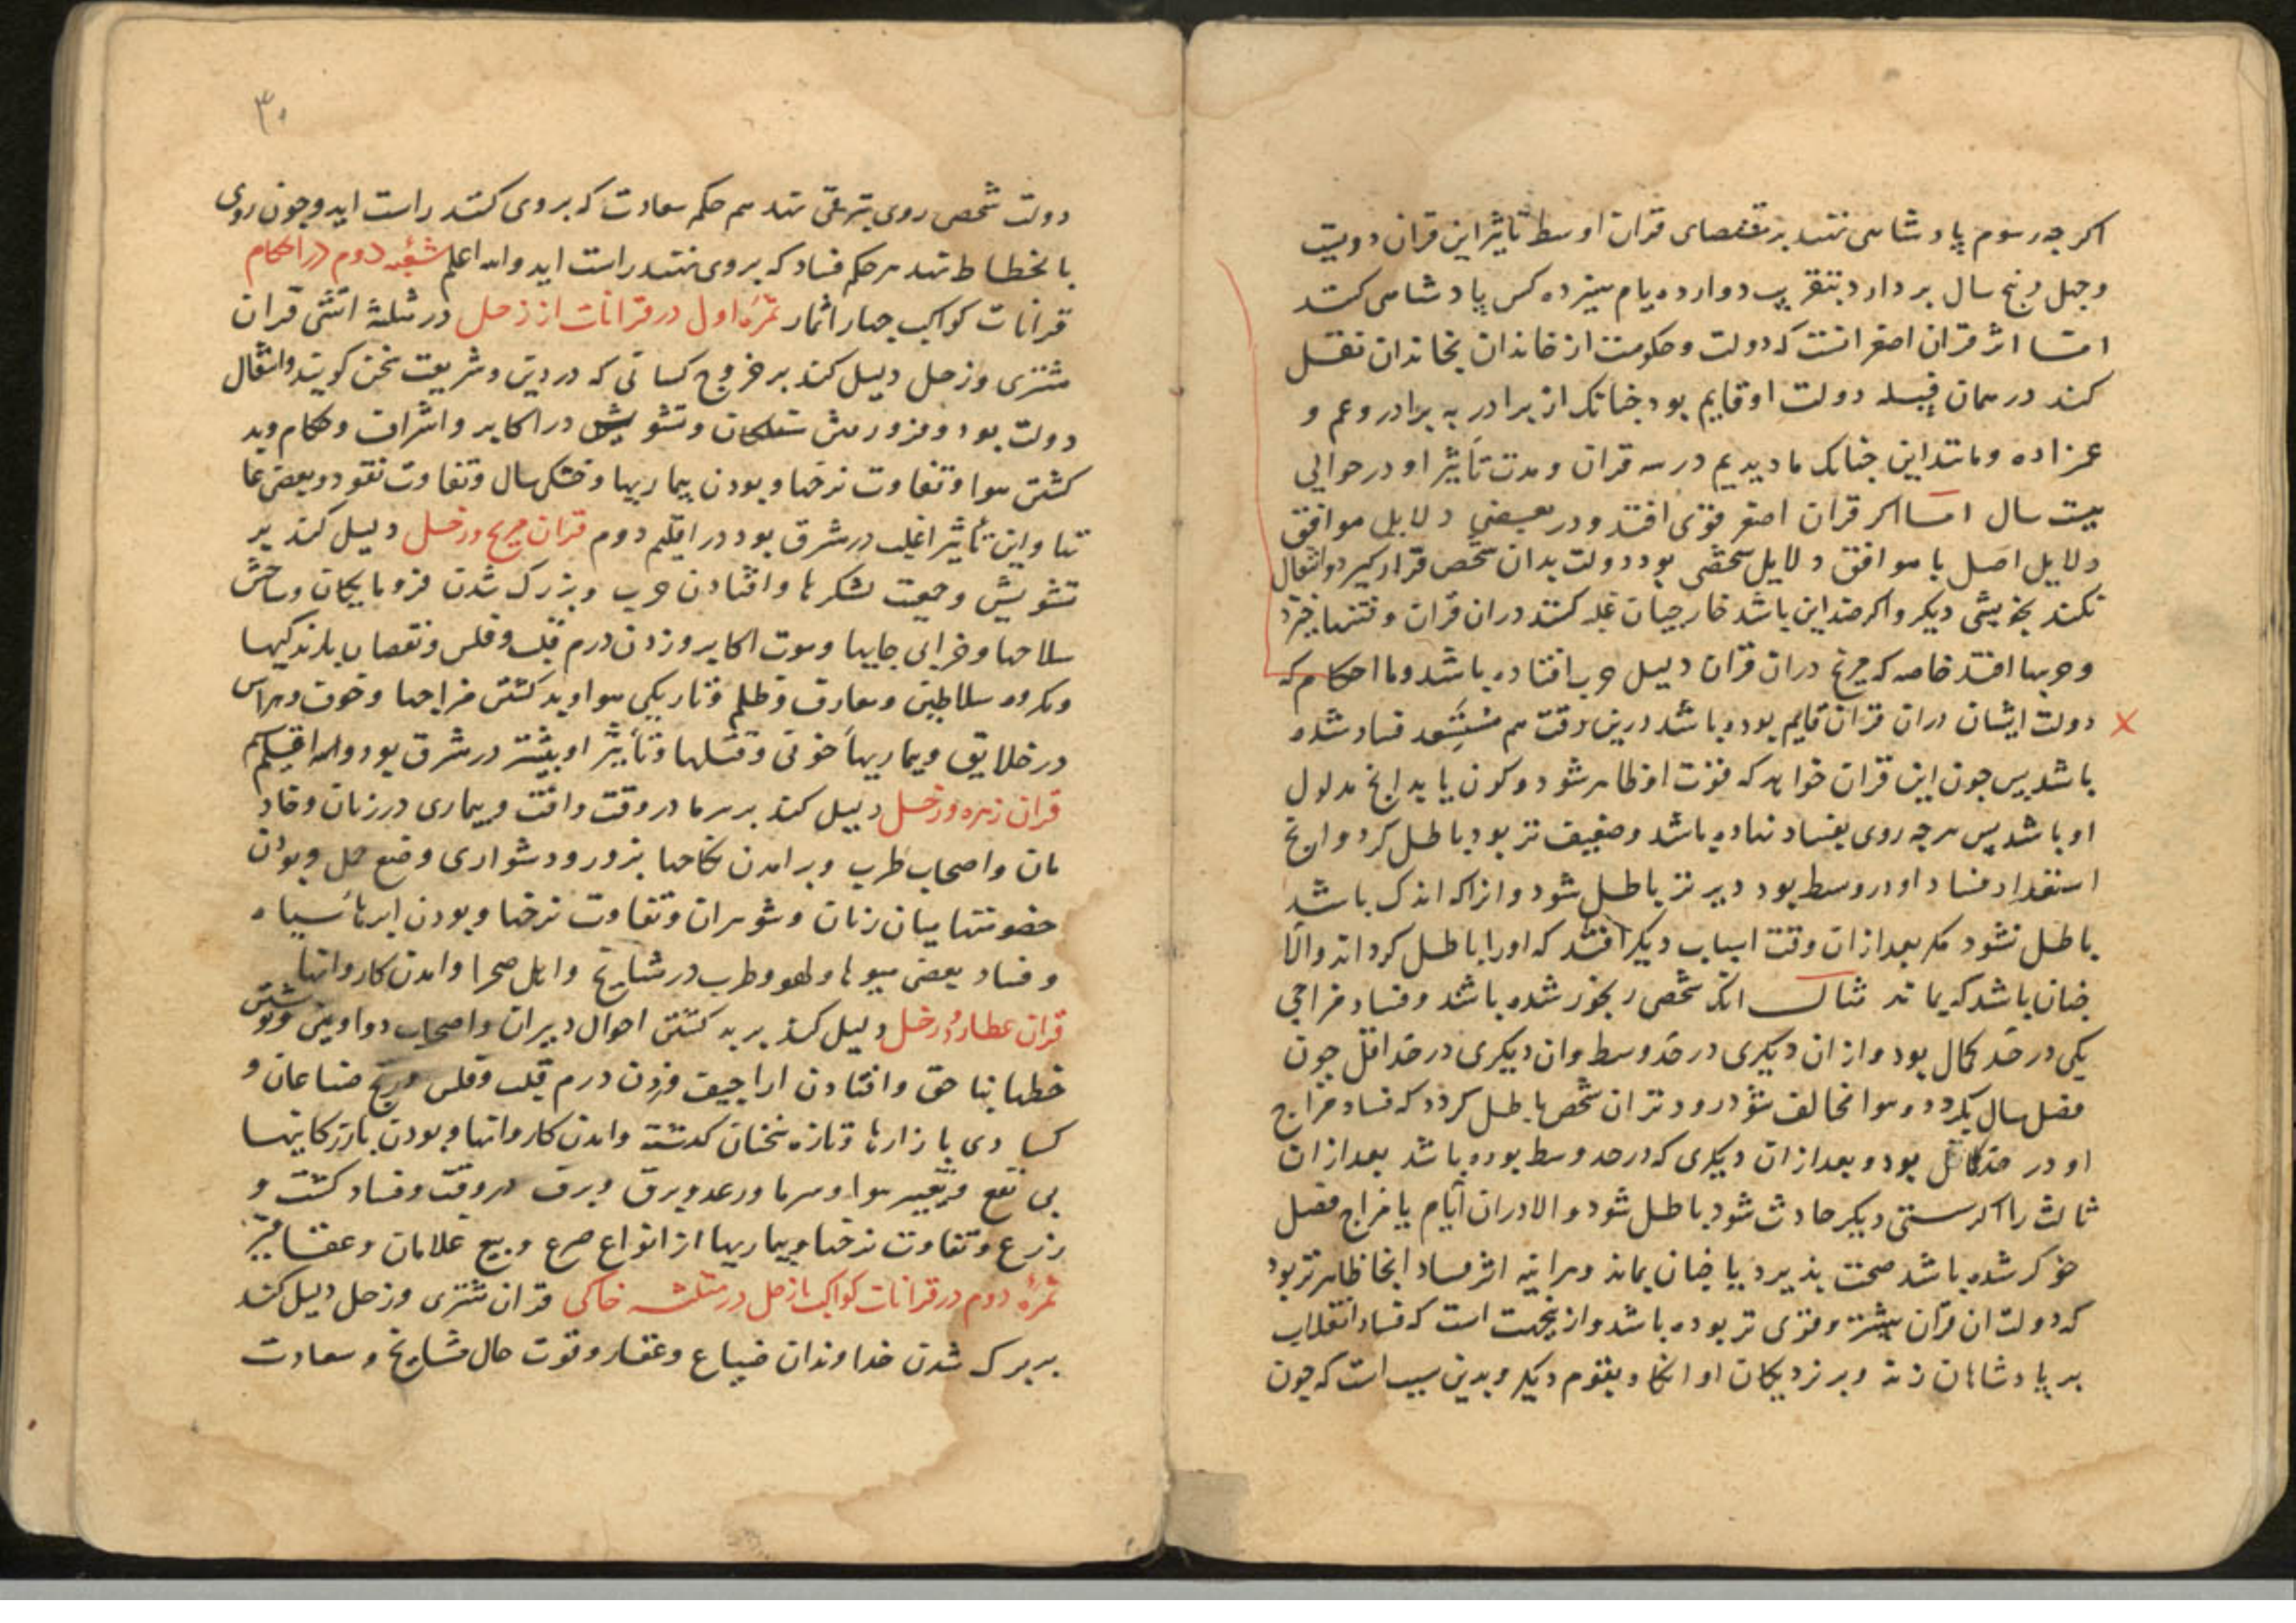 اکر چه رسوم پادشاهی نهند بر مقتضای قران اوسط تاثیر این قران دویست
و چهل و پنج سال بر دارد بتقریب دوازده یام سیزده کس پادشاهی کنند
اما اثر قران اصغر انست که دولت و حکومت از خاندان بخاندان نقل
کند در همان قبیله دولت او قایم بود جنانک از برادر به برادر و عم و
عمزاده و مانند این جنانک ما دیدیم در سه قران و مدت تأثیر او در حوالی
بیست سال اما اکر قران اصغر قوی افتد و در بعضی دلایل موافق
دلایل اصل یا موافق دلایل شخصی بود دولت بدان شخص قرار کیرد و انتقال
نکند بخویشی دیکر و اکر ضد این باشد خارجیان غلبه کنند دران قران و فتنها خیزد
و حربها افتد خاصه که مریخ دران قران دلیل حرب افتاده باشد و ما احکام که
دولت ایشان دران قران قایم بوده باشد درین وقت هم مستعد فساد شده
باشد بس جون این قران خواهد که قوت او ظاهر شود و کون یابد انج مدلول
او باشد پس هر چه روی بفساد نهاده باشد و ضعیف تر بود باطل کردد و انچ
استعداد فساد او در وسط بود دیرتر باطل شود و انرا که اندک باشد
باطل نشود مکر بعد از ان وقت اسباب دیکر افتد که او را باطل کرداند و الا
جنان باشد که بماند مثال انک شخصی رنجور شده باشد و فساد مزاجی
یکی در حد کمال بود و از ان دیکری در حد وسط و ان دیکری در حد اقل جون
فصل سال بکردد و هوا مخالف شود زودتر ان شخص باطل کردد که فساد مزاج
او در حد کامل بود و بعد از ان دیکری که در حد وسط بوده باشد بعد از ان
ثالث را اکر سستی دیکر حادث شود باطل شود و الا دران ایام یا مزاج فصل
خو کر شده باشد صحت بذیرد یا جنان بماند و هراینه اثر فساد انجا ظاهرتر بود
که دولت ان قران بیشتر و قوی تر بوده باشد و از ینجهت است که فساد انقلاب
بر پادشاهان زند و بر نزدیکان او انکاه بقوم دیکر و بدین سبب است که جون
۳۰
دولت شخصی روی بترقی نهد هم حکم سعادت که بر وی کنند راست اید و جون روی
بانحطاط نهد هر حکم فساد که بر وی نهند راست اید والله اعلم شعبه دوم در احکام
قرانات کواکب جهار اثمار ثمرۀ اول در قرانات از زحل در مثلثۀ اتشی قران
مشتری و زحل دلیل کند بر خروج کسانی که در دین و شریعت سخن کویند و انتقال
دولت بود و فزو رفتن و تشویش در اکابر و اشراف و حکام و بد
کشتن هوا و تفاوت نرخها و بودن بیماریها و خشکی سال و تفاوت نقود و بعضی غا
تها و این تأثیر اغلب در مشرق بود در اقلیم دوم قران مریخ و زحل دلیل کند بر
تشویش و جمعیت لشکرها و افتادن حرب و بزرک شدن فرومایکان و ساختن
سلاحها و خرابی جایها و موت اکابر و زدن درم قلب و فلس و نقصان بارندکیها
و مکروه سلاطین و معارف و ظلم و تاریکی هوا و بد کشتن مزاجها و خوف و هراس
در خلایق و بیماریهاء خونی و قتلها و تأثیر او بیشتر در مشرق بود والله اقلیم
قران زهره و زحل دلیل کند بر سرما در وقت و افت و بیماری در زنان و خاد
مان و اصحاب طرب و بر امدن نکاحها بزور و دشواری وضع حمل و بودن
خصومتها میان زنان و شوهران و تفاوت نرخها و بودن ابرهاء سیاه
و فساد بعضی میوها و لهو و طرب در مشایخ و اهل صحرا و امدن کاروانها
قران عطارد و زحل دلیل کند بر بد کشتن احوال دبیران و اصحاب دواوین و نوشتن
خطها بناحق و افتادن اراجیف و زدن درم قلب و فلس و رنج صناعان و
کسادی بازارها و تازه سخنان کذشته و امدن کاروانها و بودن بازرکانیها
بی نفع و تغییر هوا و سرما و رعد و برق و برف در وقت و فساد کشت و
زرع و تفاوت نرخها و بیماریها از انواع صرع و بیع غلامان و عقاقیر
ثمرۀ دوم در قرانات کواکب با زحل در مثلثه خاکی قران مشتری و زحل دلیل کند
بر بزرک شدن خداوندان ضیاع و عقار و قوت حال مشایخ و سعادت